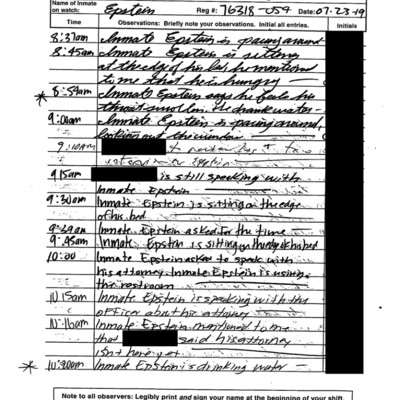 Name of Inmate on watch: Epstein Reg #: 76318-054 Date: 07-23-19
Time Observations: Briefly note your observations. Initial all entries. Initials
8:37am Inmate Epstein is pacing around
8:45am Inmate Epstein is sitting
at the edge of his bed he mentioned
to me that he is hungry
* 8:59am Inmate Epstein says he feels his
throat swollen. drank water
9:00am Inmate Epstein is pacing around,
looking out the window
9:10am
Epstein
9:15am is still speaking with
Inmate Epstein
9:30am Inmate Epstein is sitting on the edge
of his bed
Inmate Epstein asked for the time
9:45am Inmate Epstein is sitting on the edge of his bed
10:00 Inmate Epstein asked to speak with
his attorney. Inmate Epstein is using
the restroom
10:15am Inmate Epstein is speaking with the
officer about his attorney
10:16am Inmate Epstein mentioned to me
that said his attorney
isn't here yet
* Inmate Epstein is drinking water
Note to all observers: Legibly print and sign your name at the beginning of your shift.